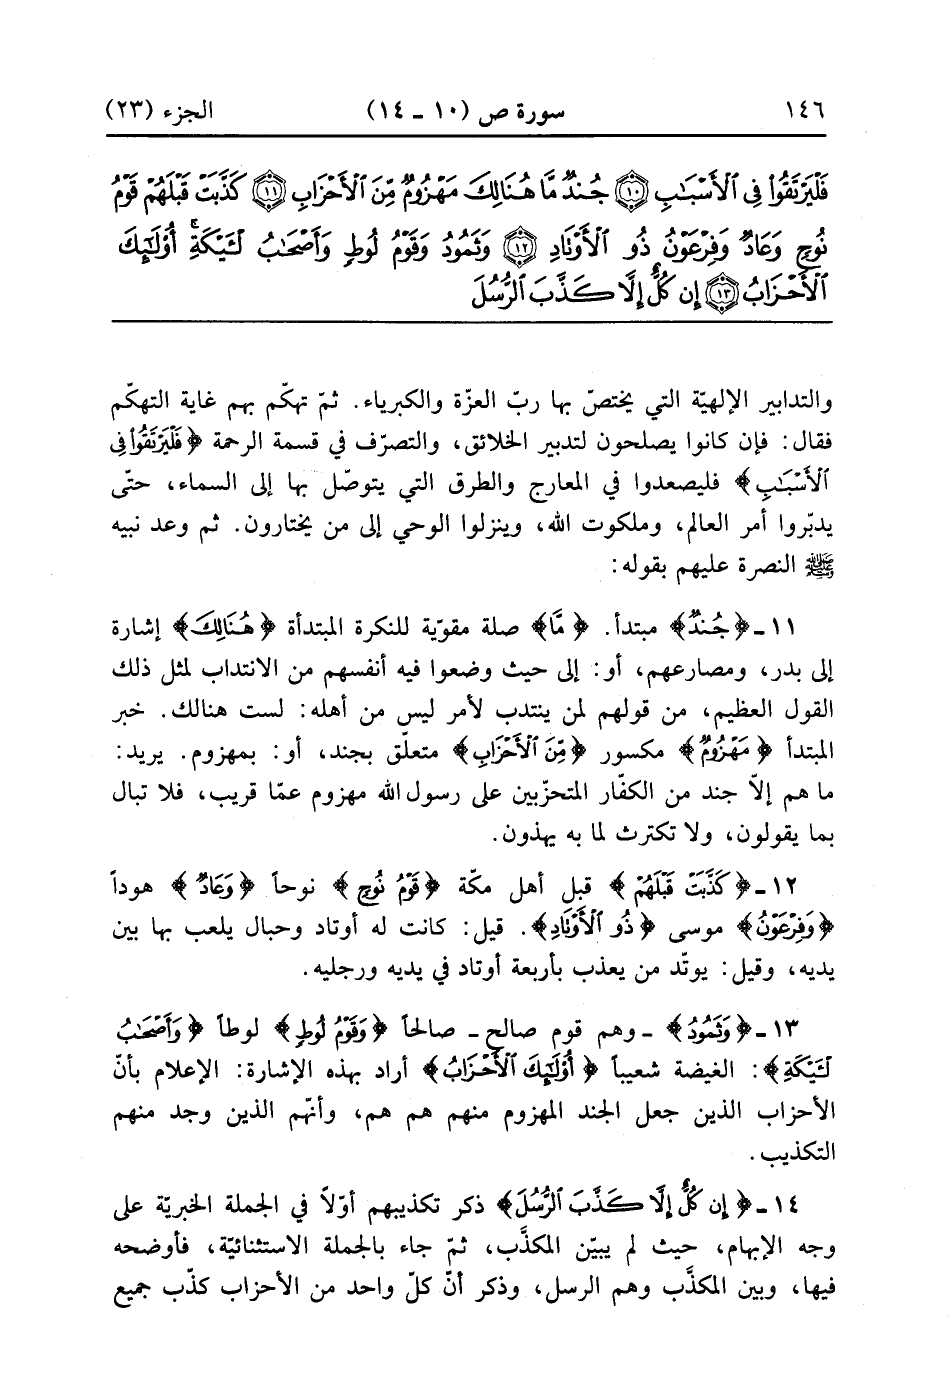 ١٤٦ سورة ص (١٠ - ١٤) الجزء (٢٣)
فَلْيَرْتَقُوا۟ فِى ٱلْأَسْبَـٰبِ ﴿١٠﴾ جُندٌ مَّا هُنَالِكَ مَهْزُومٌ مِّنَ ٱلْأَحْزَابِ ﴿١١﴾ كَذَّبَتْ قَبْلَهُمْ قَوْمُ
نُوحٍ وَعَادٌ وَفِرْعَوْنُ ذُو ٱلْأَوْتَادِ ﴿١٢﴾ وَثَمُودُ وَقَوْمُ لُوطٍ وَأَصْحَـٰبُ لْـَٔيْكَةِ ۚ أُو۟لَـٰٓئِكَ
ٱلْأَحْزَابُ ﴿١٣﴾ إِن كُلٌّ إِلَّا كَذَّبَ ٱلرُّسُلَ
والتدابير الإلهيّة التي يختصّ بها ربّ العزّة والكبرياء. ثمّ تهكّم بهم غاية التهكّم
فقال: فإن كانوا يصلحون لتدبير الخلائق، والتصرّف في قسمة الرحمة ﴿فَلْيَرْتَقُوا۟ فِى
ٱلْأَسْبَـٰبِ﴾ فليصعدوا في المعارج والطرق التي يتوصّل بها إلى السماء، حتّى
يدبّروا أمر العالم، وملكوت الله، وينزلوا الوحي إلى من يختارون. ثم وعد نبيه
ﷺ النصرة عليهم بقوله:
١١ - ﴿جُندٌ﴾ مبتدأ. ﴿مَّا﴾ صلة مقوّية للنكرة المبتدأة ﴿هُنَالِكَ﴾ إشارة
إلى بدر، ومصارعهم، أو: إلى حيث وضعوا فيه أنفسهم من الانتداب لمثل ذلك
القول العظيم، من قولهم لمن ينتدب لأمر ليس من أهله: لست هنالك. خبر
المبتدأ ﴿مَهْزُومٌ﴾ مكسور ﴿مِّنَ ٱلْأَحْزَابِ﴾ متعلّق بجند، أو: بمهزوم. يريد:
ما هم إلاّ جند من الكفّار المتحزّبين على رسول الله مهزوم عمّا قريب، فلا تبال
بما يقولون، ولا تكترث لما به يهذون.
١٢ - ﴿كَذَّبَتْ قَبْلَهُمْ﴾ قبل أهل مكّة ﴿قَوْمُ نُوحٍ﴾ نوحاً ﴿وَعَادٌ﴾ هوداً
﴿وَفِرْعَوْنُ﴾ موسى ﴿ذُو ٱلْأَوْتَادِ﴾. قيل: كانت له أوتاد وحبال يلعب بها بين
يديه، وقيل: يوتّد من يعذب بأربعة أوتاد في يديه ورجليه.
١٣ - ﴿وَثَمُودُ﴾ - وهم قوم صالح - صالحاً ﴿وَقَوْمُ لُوطٍ﴾ لوطاً ﴿وَأَصْحَـٰبُ
لْـَٔيْكَةِ﴾: الغيضة شعيباً ﴿أُو۟لَـٰٓئِكَ ٱلْأَحْزَابُ﴾ أراد بهذه الإشارة: الإعلام بأنّ
الأحزاب الذين جعل الجند المهزوم منهم هم هم، وأنّهم الذين وجد منهم
التكذيب.
١٤ - ﴿إِن كُلٌّ إِلَّا كَذَّبَ ٱلرُّسُلَ﴾ ذكر تكذيبهم أوّلاً في الجملة الخبريّة على
وجه الإبهام، حيث لم يبيّن المكذَّب، ثمّ جاء بالجملة الاستثنائيّة، فأوضحه
فيها، وبين المكذَّب وهم الرسل، وذكر أنّ كلّ واحد من الأحزاب كذّب جميع